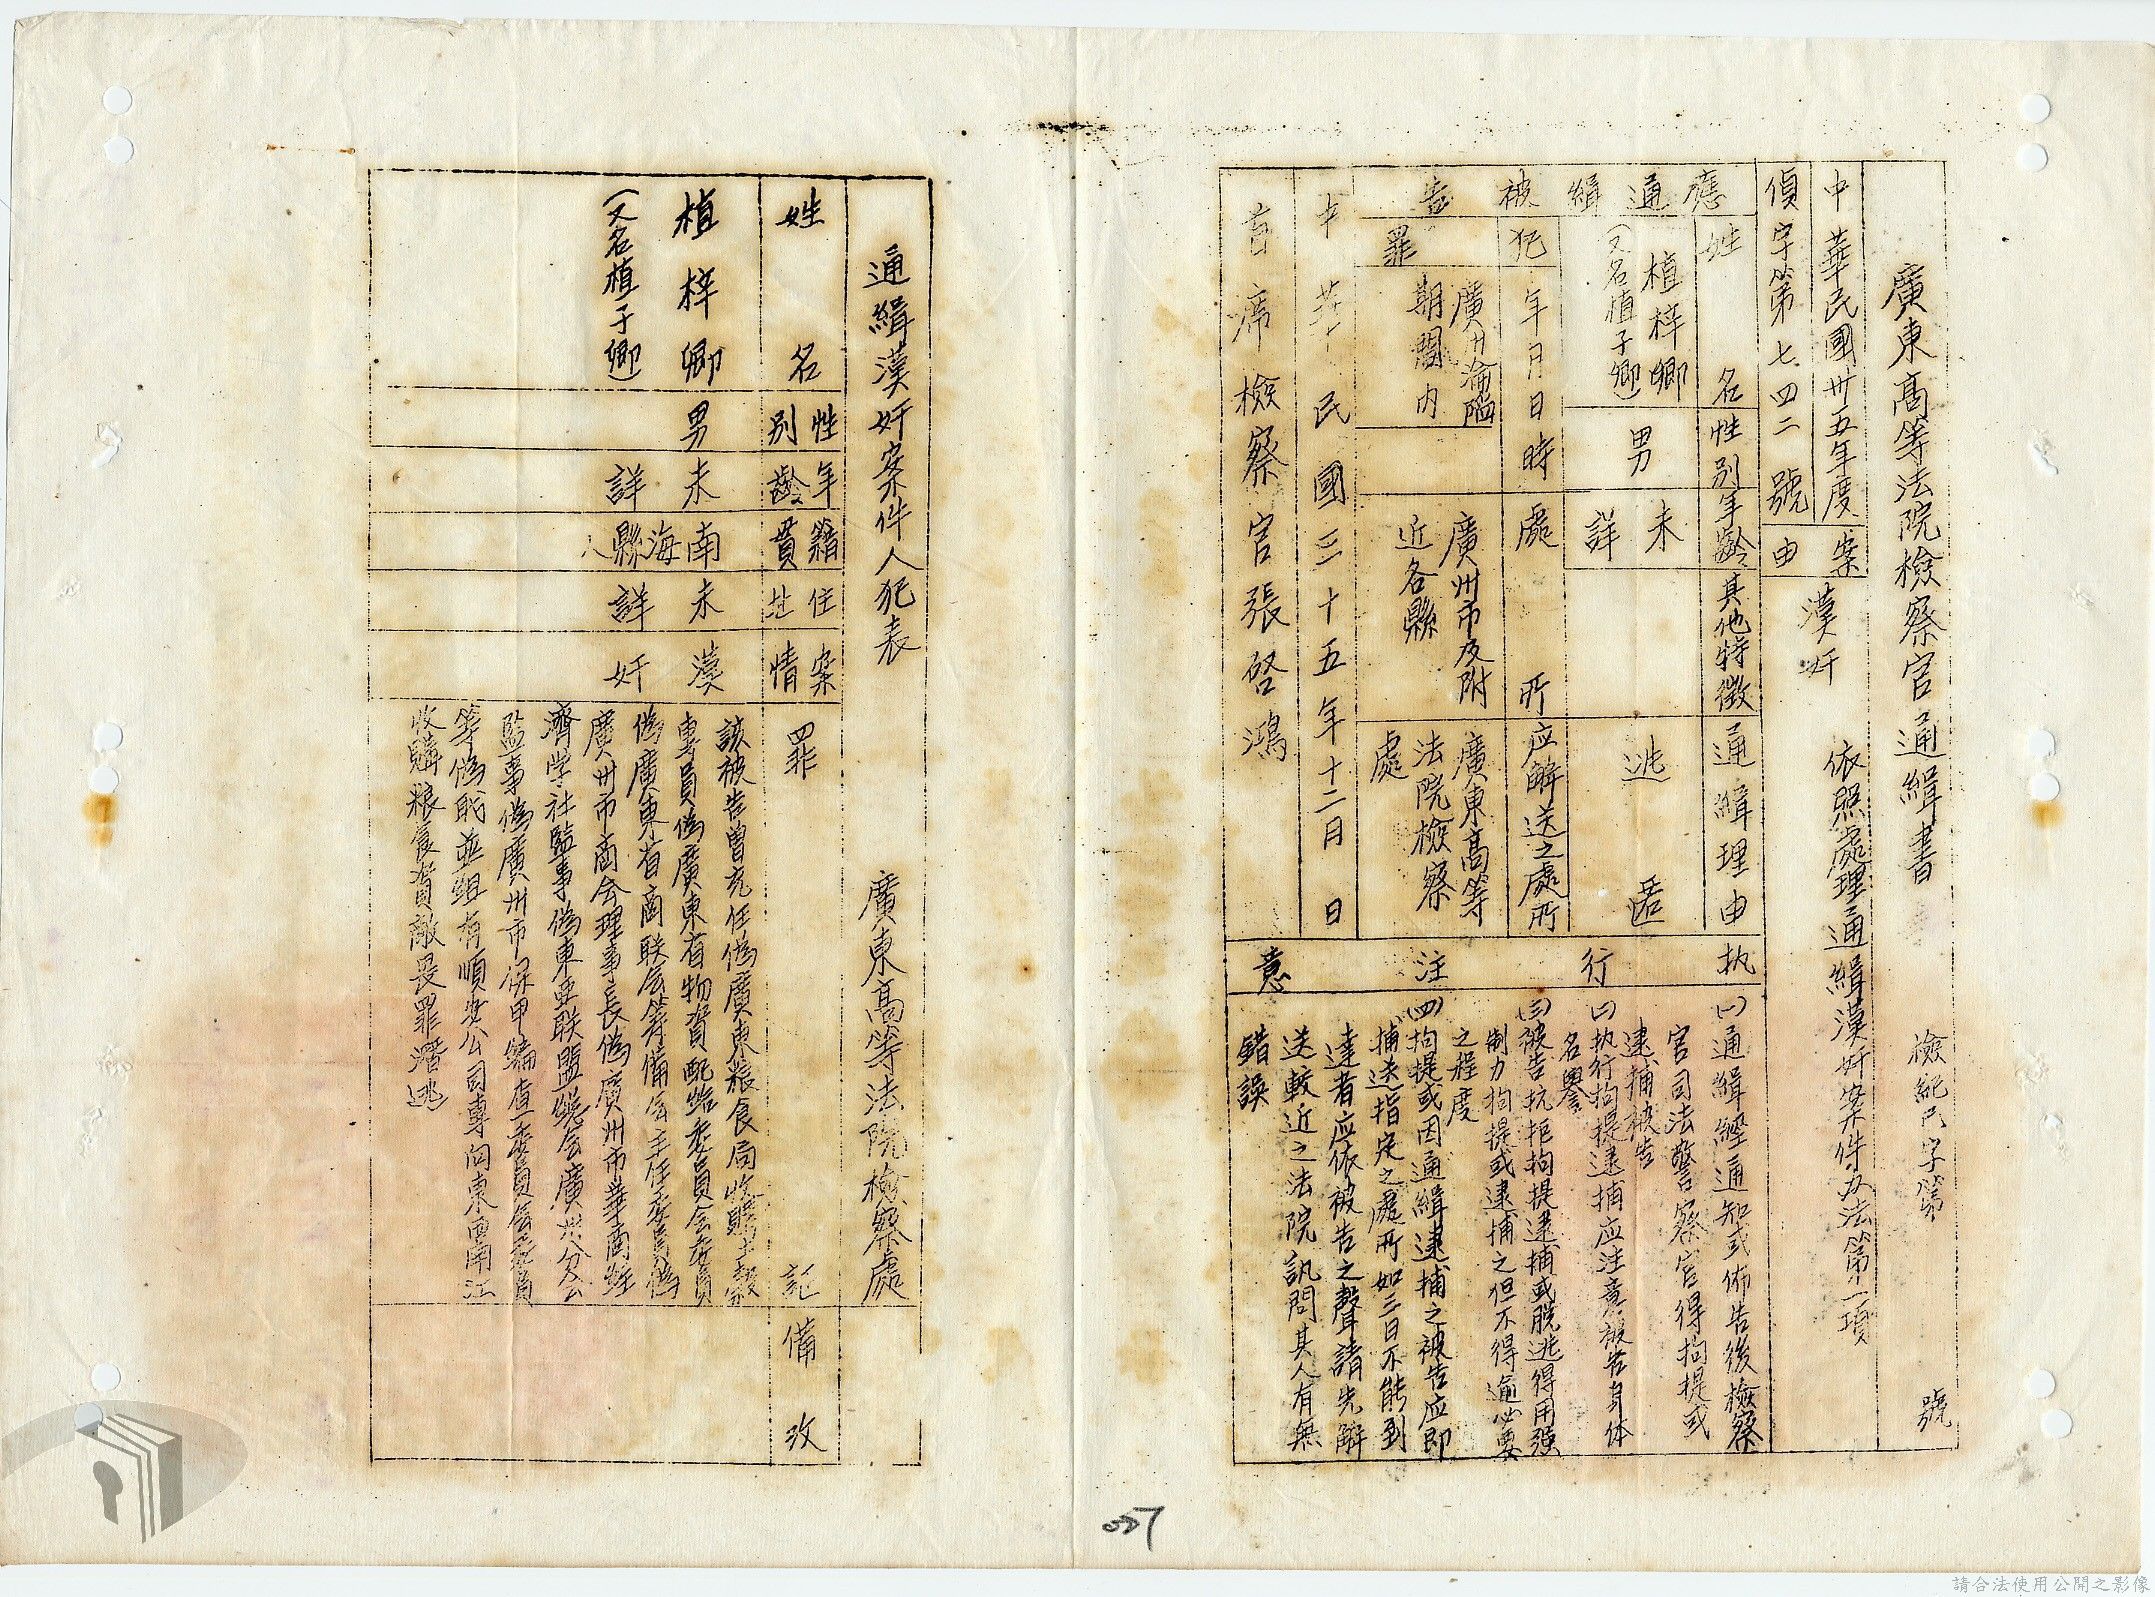 廣東高等法院檢察官通緝書
檢紀民字第 號
中華民國卅五年度
偵字第七四二號
案由
漢奸
依照處理通緝漢奸案件办法第一項
應通緝被告
姓名
性別
年齡
其他特徵
通緝理由
植梓卿
(又名植子卿)
男
未詳
逃匿
犯罪
年月日時
處所
应解送之處所
廣州淪陷
期間內
廣州市及附
近各縣
廣東高等
法院檢察
處
中華民國三十五年十二月 日
首席檢察官張啓鴻
执行注意
(一)通緝經通知或佈告後檢察
官司法警察官得拘提或
逮捕被告
(二)执行拘提逮捕应注意被告身体
名譽
(三)被告抗拒拘提逮捕或脫逃得用強
制力拘提或逮捕之但不得逾必要
之程度
(四)拘提或因通緝逮捕之被告应即
捕送指定之處所如三日不能到
達者应依被告之聲請先解
送較近之法院訊問其人有無
錯誤
通緝漢奸案件人犯表
廣東高等法院檢察處
姓名
性別
年齡
籍貫
住址
案情
罪
記
備攷
植梓卿
(又名植子卿)
男
未詳
南海縣人
未詳
漢奸
該被告曾充任偽廣東粮食局收購土穀
專員偽廣東省物資配給委員会委員
偽廣東省商联会筹備会主任委員偽
廣州市商会理事長偽廣州市華商經
濟学社監事偽東亜联盟總会廣州分会
監事偽廣州市保甲編查委員会委員
等偽职並組有順安公司專向東西南江
收購粮食資敵畏罪潛逃
007
請合法使用公開之影像